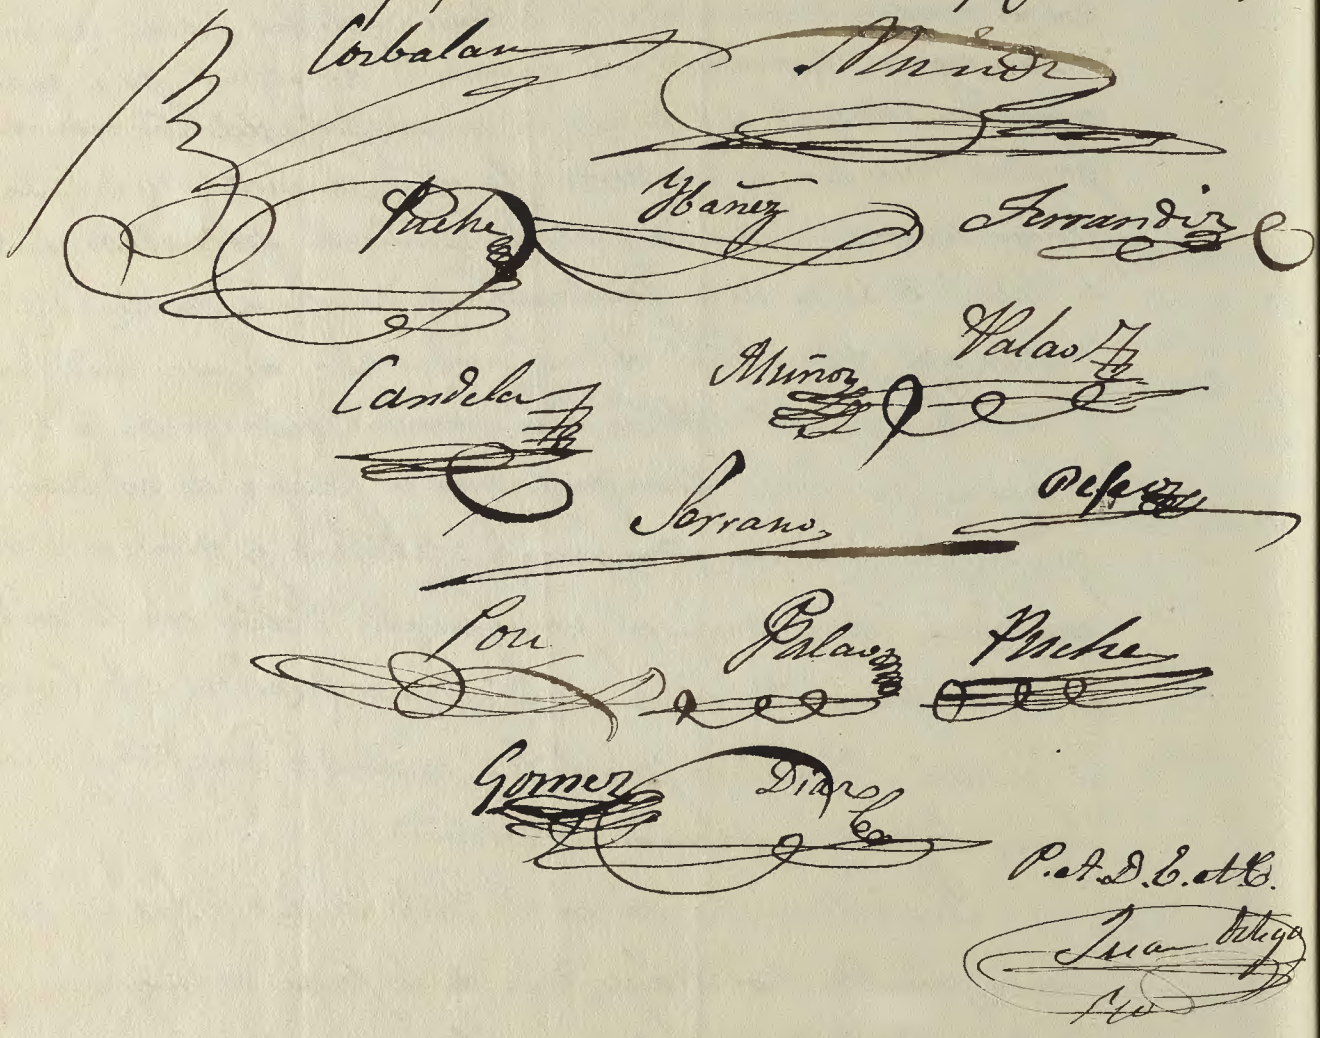 Corbalan Muñoz
Puche Ybañez Ferrandiz
Candela Muñoz Palao
Serrano
Pou Palao Puche
Gomez Diaz
P. A. D. E. A. C.
Juan Ortega
Srio